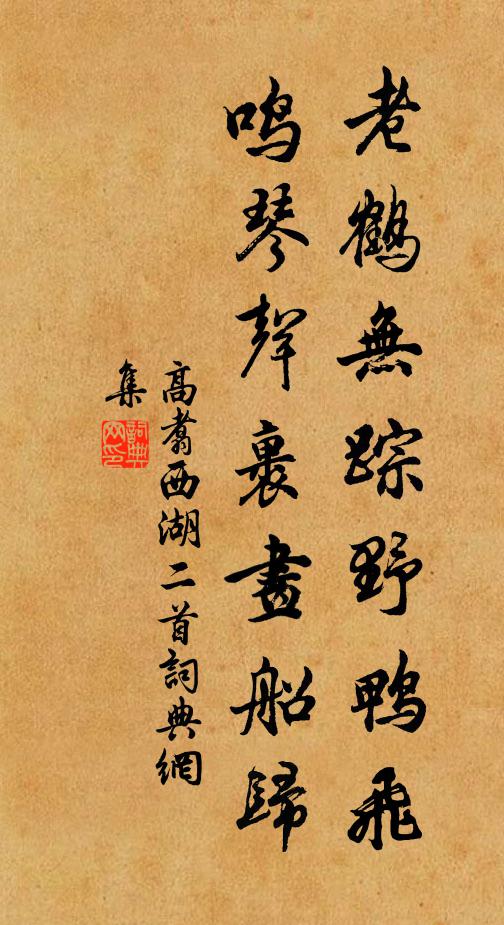 老鶴無踪野鴨飛
鳴琴聲裏畫船歸
高翥西湖二首詞典網
集
詞典
网印